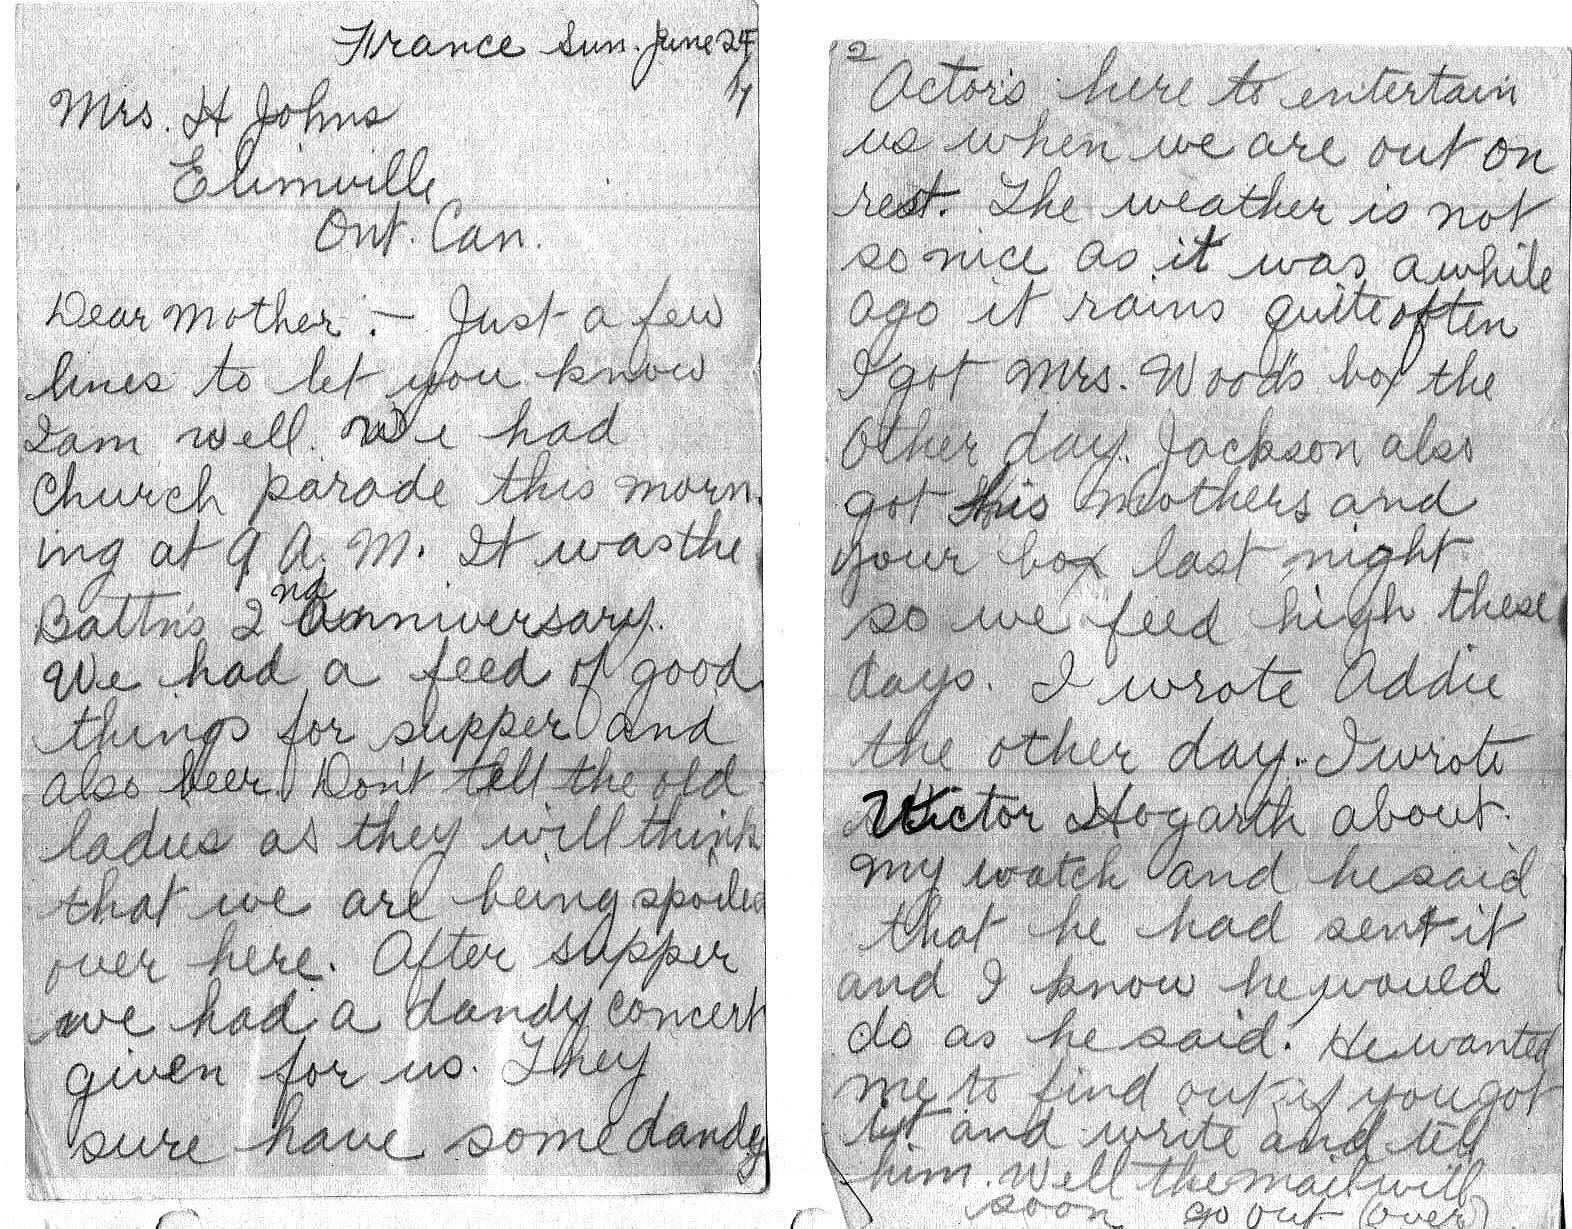 France Sun. June 24
17
Mrs. H Johns
Elimville
Ont. Can.
Dear Mother :- Just a few
lines to let you know
I am well. We had
Church parade this morn-
ing at 9 A. M. It was the
Battn's 2nd anniversary.
We had a feed of good
things for supper and
also beer. Don't tell the old
ladies as they will think
that we are being spoiled
over here. After supper
we had a dandy concert
given for us. They
sure have some dandy
2
Actors here to entertain
us when we are out on
rest. The weather is not
so nice as it was awhile
ago it rains quite often
I got Mrs. Woods box the
other day. Jackson also
got his mothers and
your box last night
so we feed high these
days. I wrote Addie
the other day. I wrote
Victor Hogarth about
my watch and he said
that he had sent it
and I know he would
do as he said. He wanted
me to find out if you got
it and write and tell
him. Well the mail will
soon go out (over)